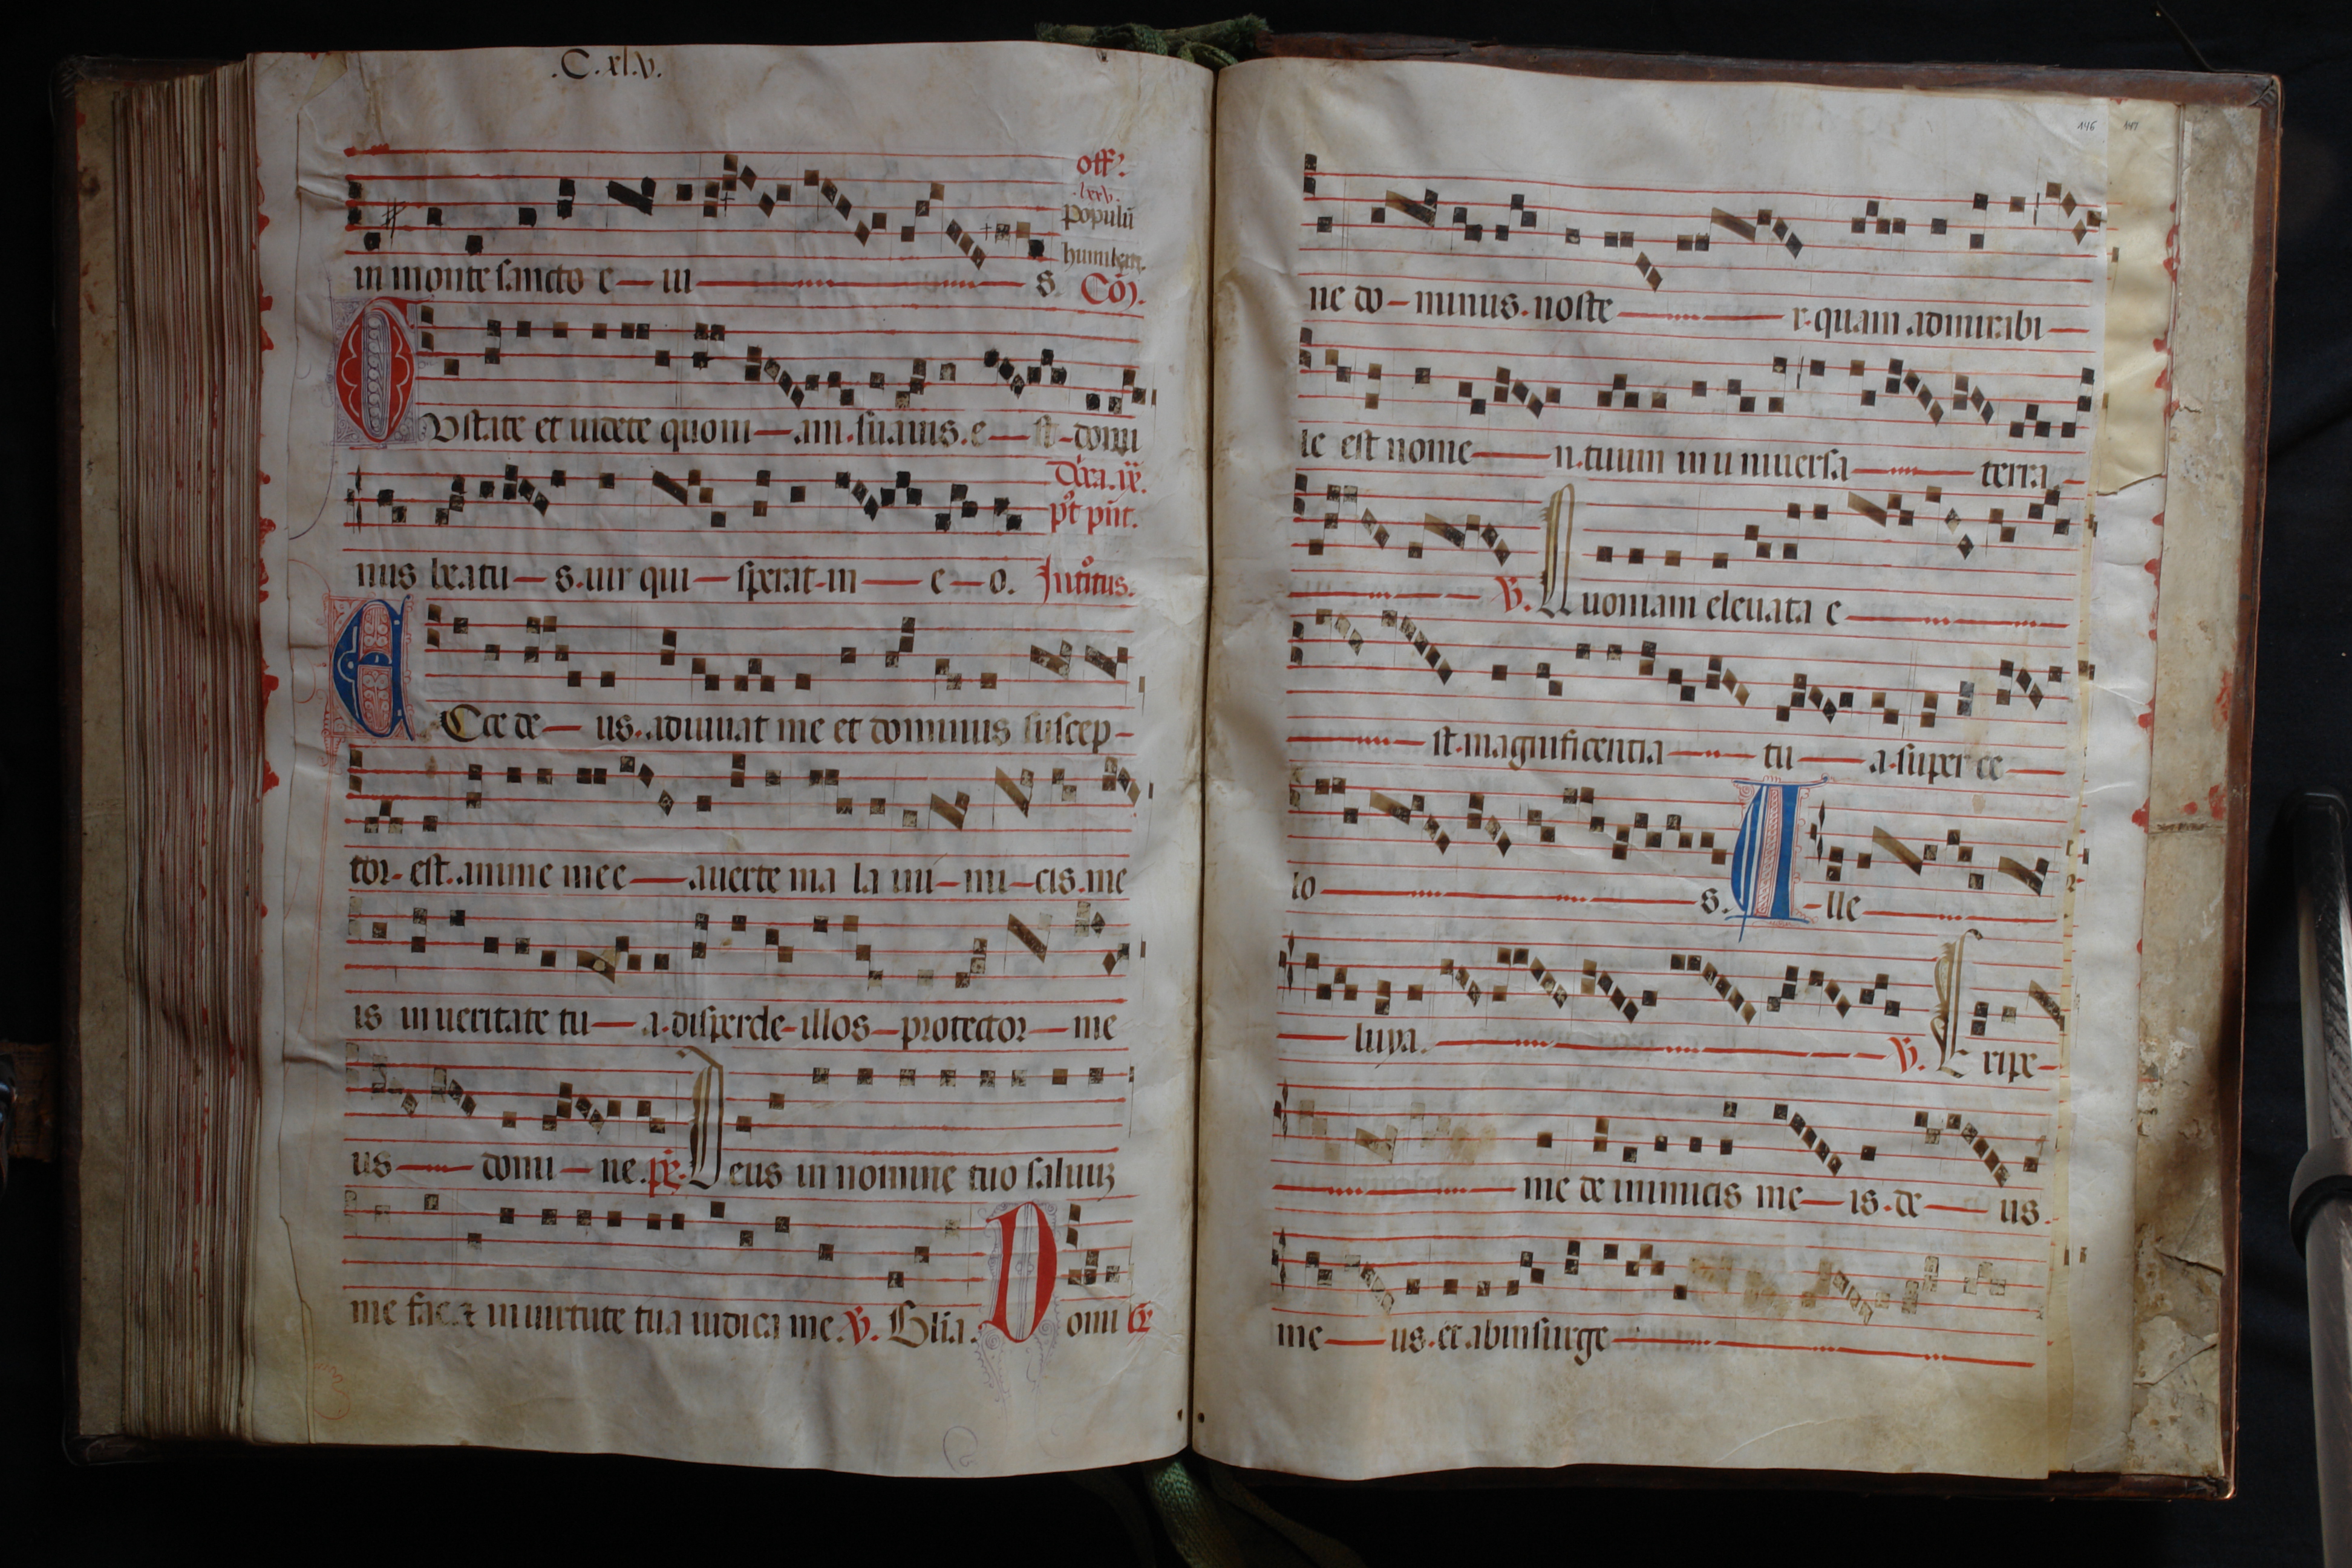 .C.xl.v.
off?
.lxxv.
populū
humilem.
in monte sancto e iu s. Cōᷤ.
GUstate et uidete quoni am suauis e st domi
Dn̄ca .ix.
pꝰt pēt.
nus beatu s uir qui sperat in e o. Introitus.
ECce de us adiuuat me et dominus suscep
tor est anime mee auerte ma la ini mi cis me
is in ueritate tu a disperde illos protector me
us domi ne. ps. Deus in nomine tuo saluuꝫ
me fac ⁊ in uirtute tua iudica me. V. Glia. Domi
146 147
ne do minus noste r quam admirabi
le est nome n tuum in u niuersa terra
V. Quoniam eleuata e
st magnificentia tu a super ce
lo s. A lle
luya. V. Eripe
me de inimicis me is de us
me us et ab insurge